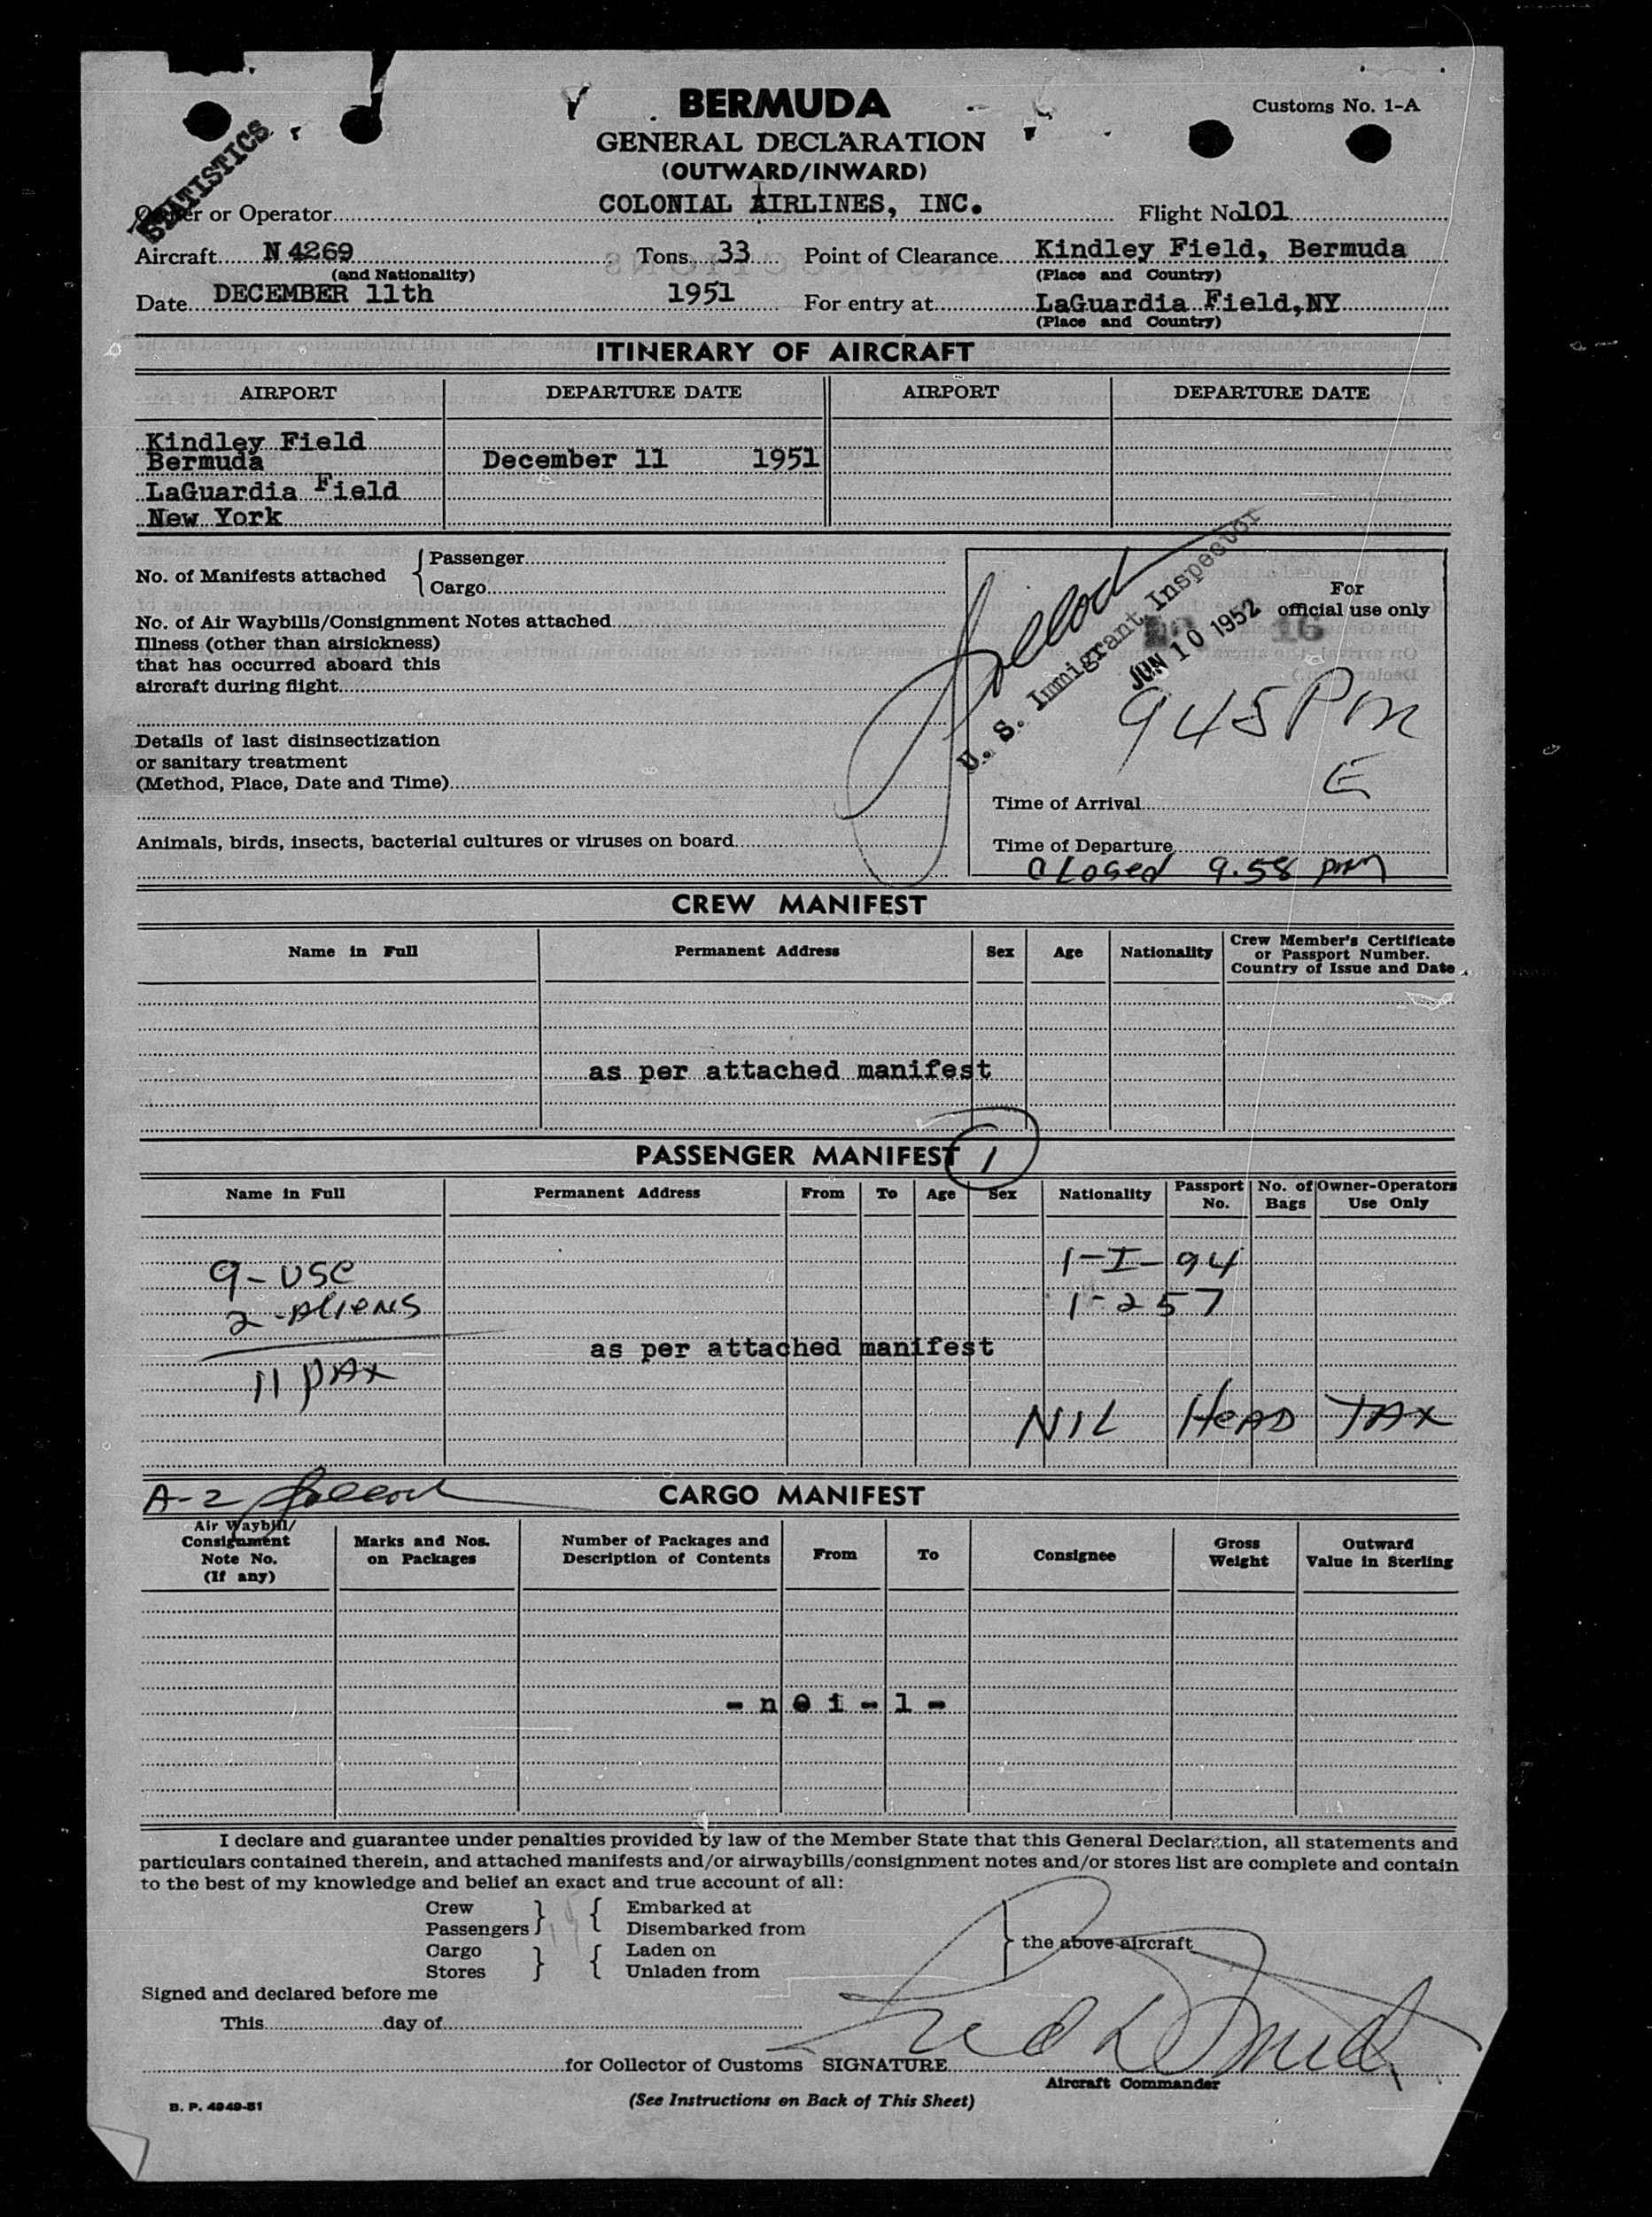 BERMUDA
Customs No. 1-A
GENERAL DECLARATION
(OUTWARD/INWARD)
STATISTICS
Owner or Operator COLONIAL AIRLINES, INC. Flight No 101
Aircraft N 4269 Tons 33 Point of Clearance Kindley Field, Bermuda
(and Nationality) (Place and Country)
Date DECEMBER 11th 1951 For entry at LaGuardia Field,NY
(Place and Country)
ITINERARY OF AIRCRAFT
AIRPORT DEPARTURE DATE AIRPORT DEPARTURE DATE
Kindley Field
Bermuda December 11 1951
LaGuardia Field
New York
No. of Manifests attached { Passenger
Cargo
No. of Air Waybills/Consignment Notes attached
Illness (other than airsickness)
that has occurred aboard this
aircraft during flight
Details of last disinsectization
or sanitary treatment
(Method, Place, Date and Time)
Animals, birds, insects, bacterial cultures or viruses on board
For
official use only
U. S. Immigrant Inspector
JUN 10 1952
16
945 PM
E
Time of Arrival
Time of Departure
Closed 9.58 pm
CREW MANIFEST
Name in Full Permanent Address Sex Age Nationality Crew Member's Certificate
or Passport Number.
Country of Issue and Date
as per attached manifest
PASSENGER MANIFEST 1
Name in Full Permanent Address From To Age Sex Nationality Passport No. No. of Bags Owner-Operators Use Only
9-USC 1-I-94
2-Aliens 1-257
as per attached manifest
11 PAX
NIL HEAD TAX
A-2
CARGO MANIFEST
Air Waybill/
Consignment
Note No.
(If any) Marks and Nos.
on Packages Number of Packages and
Description of Contents From To Consignee Gross
Weight Outward
Value in Sterling
- n e i - l -
I declare and guarantee under penalties provided by law of the Member State that this General Declaration, all statements and
particulars contained therein, and attached manifests and/or airwaybills/consignment notes and/or stores list are complete and contain
to the best of my knowledge and belief an exact and true account of all:
Crew } { Embarked at
Passengers Disembarked from
} the above aircraft
Cargo } { Laden on
Stores Unladen from
Signed and declared before me
This day of
for Collector of Customs SIGNATURE
Aircraft Commander
B. P. 4949-51
(See Instructions on Back of This Sheet)